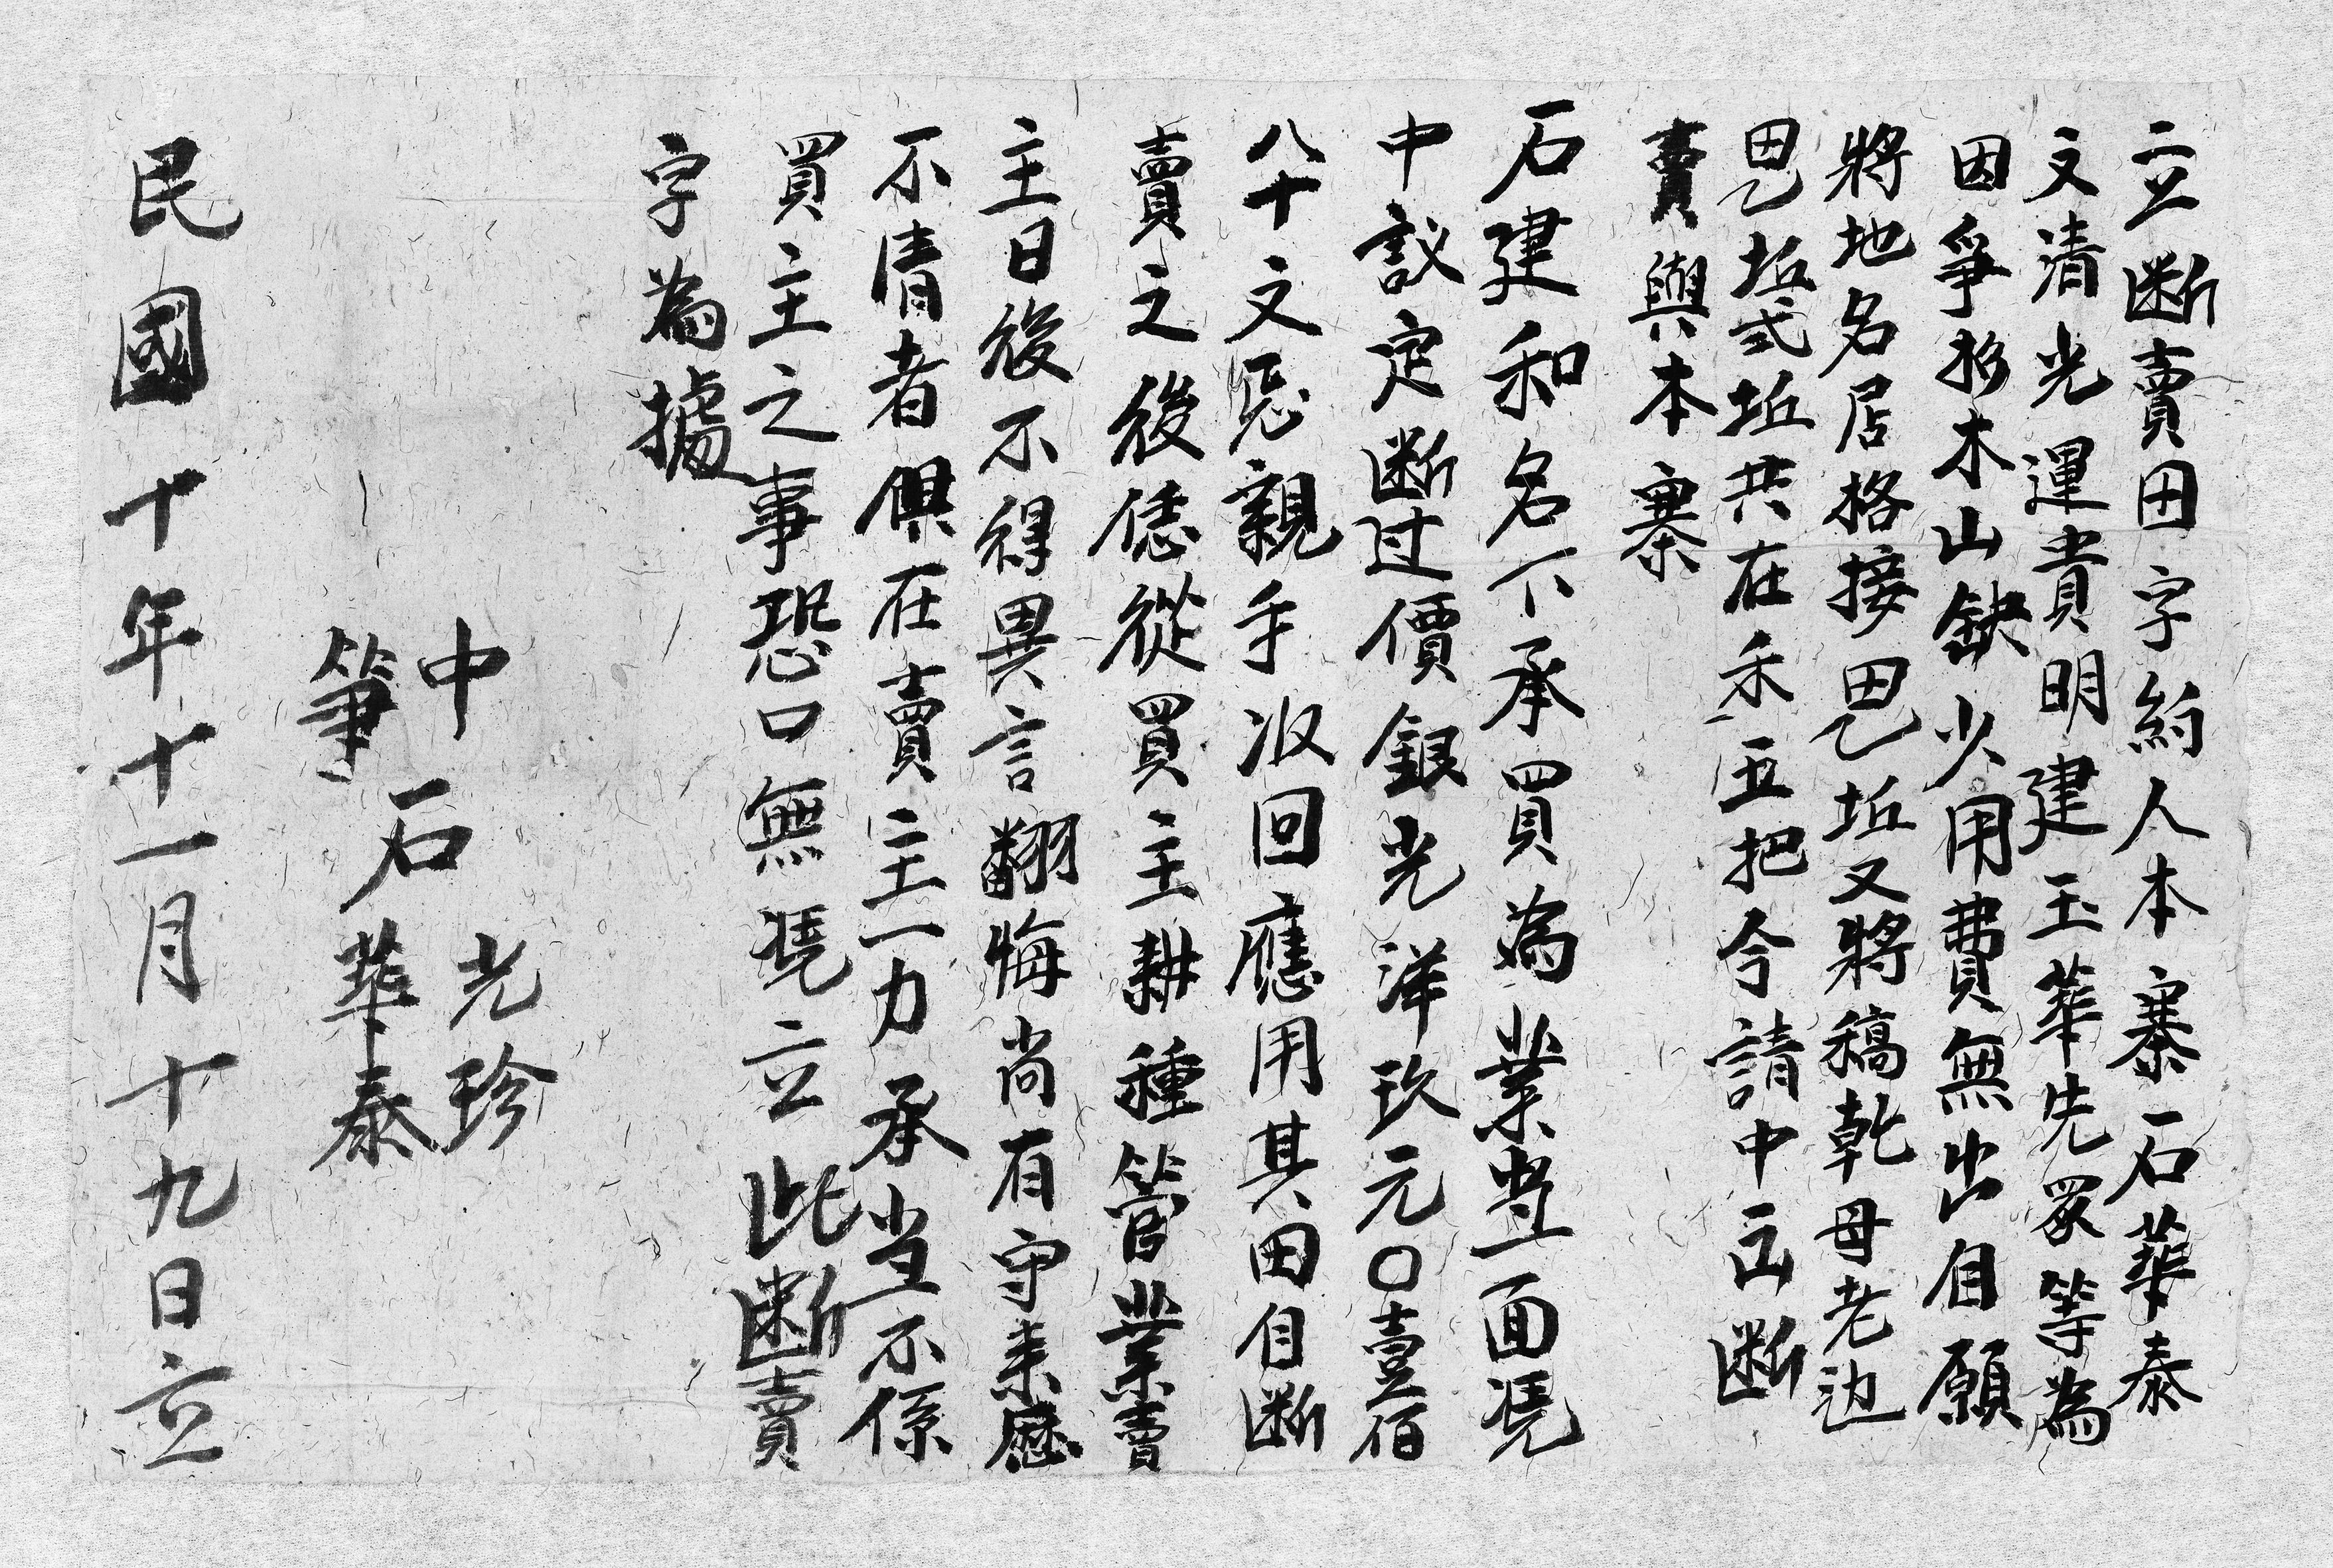 立断賣田字約人本寨石華泰
文清光運貴明建玉華先眾等為
因爭杉木山缺少用費無出自願
將地名居格接田乙坵又將稿乾母老边
田乙坵弍坵共在禾五把今請中立断
賣與本寨
石建和名下承買為業當面凭
中議定断过價銀光洋玖元〇壹佰
八十文足親手收回應用其田自断
賣之後恁從買主耕種管業賣
主日後不得異言翻悔尚有守來歷
不清者俱在賣主一力承当不係
買主之事恐口無凭立此断賣
字為據
中 光珍
筆 石華泰
民國十年十一月十九日立